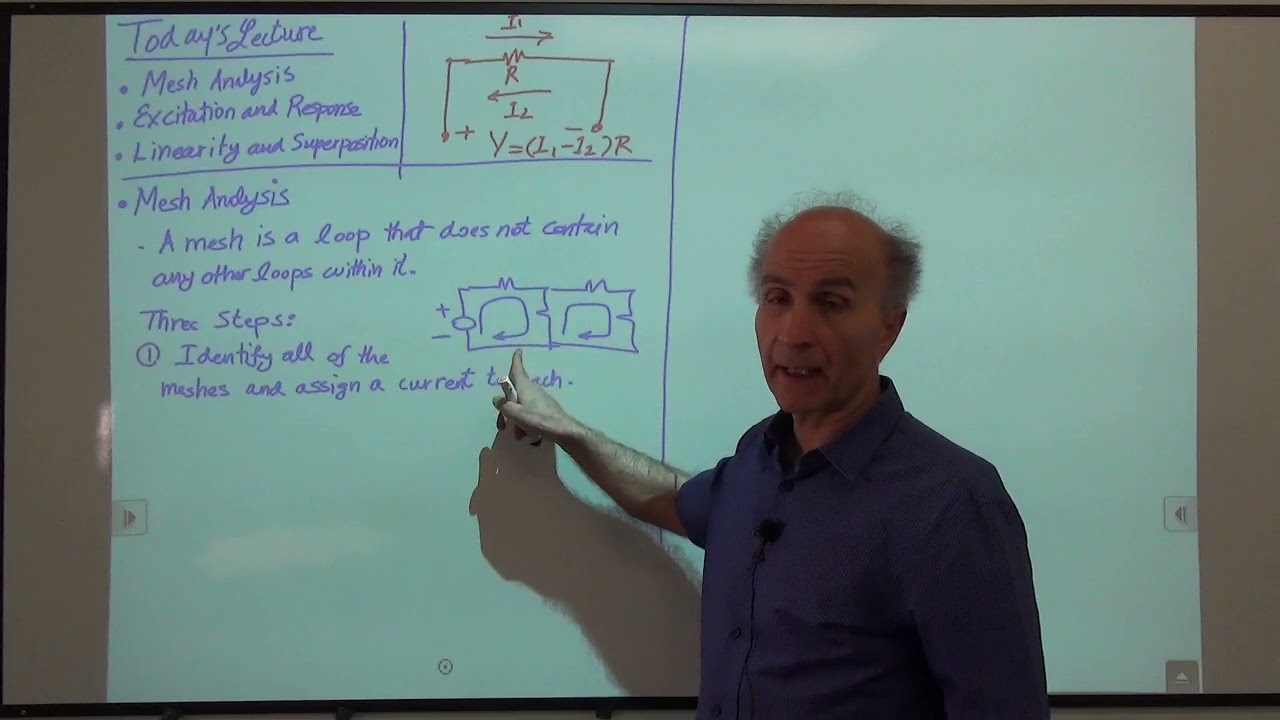 Today's Lecture
• Mesh Analysis
• Excitation and Response
• Linearity and Superposition
I₁
R
I₂
+ −
V=(I₁-I₂)R
• Mesh Analysis
- A mesh is a loop that does not contain
any other loops within it.
Three Steps:
+
−
① Identify all of the
meshes and assign a current to each.